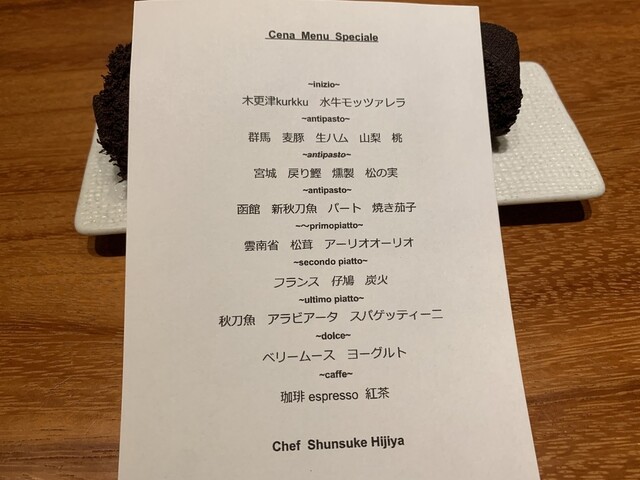 Cena Menu Speciale
~inizio~
木更津kurkku 水牛モッツァレラ
~antipasto~
群馬 麦豚 生ハム 山梨 桃
~antipasto~
宮城 戻り鰹 燻製 松の実
~antipasto~
函館 新秋刀魚 パート 焼き茄子
~~primopiatto~
雲南省 松茸 アーリオオーリオ
~secondo piatto~
フランス 仔鳩 炭火
~ultimo piatto~
秋刀魚 アラビアータ スパゲッティーニ
~dolce~
ベリームース ヨーグルト
~caffe~
珈琲 espresso 紅茶
Chef Shunsuke Hijiya